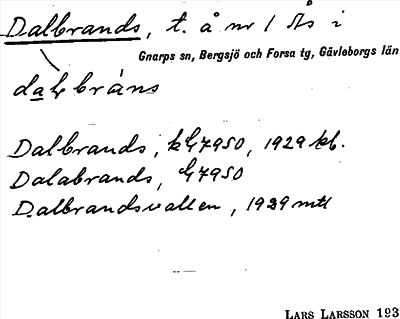 Dalbrands, t. å nr 1 Ås i
Gnarps sn, Bergsjö och Forsa tg, Gävleborgs län
bråns
Dalbrands, 1929 kb.
Dalabrands,
Dalbrandsvallen, 1929 mtl
LARS LARSSON 193